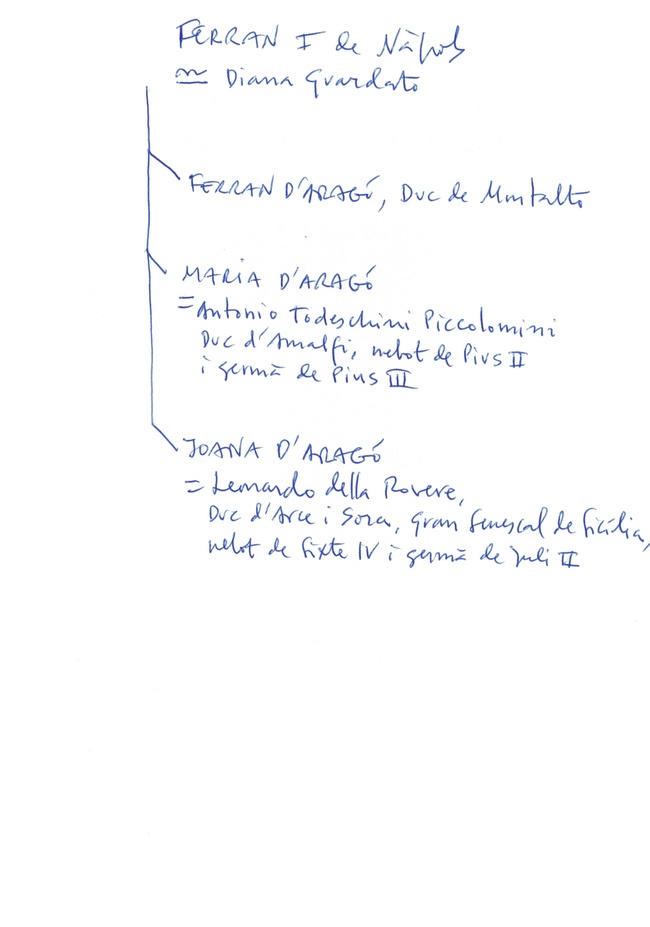 FERRAN I de Nàpols
≃ Diana Guardato
FERRAN D'ARAGÓ, Duc de Montalto
MARIA D'ARAGÓ
= Antonio Todeschini Piccolomini
Duc d'Amalfi, nebot de Pius II
i germà de Pius III
JOANA D'ARAGÓ
= Leonardo della Rovere,
Duc d'Arce i Sora, Gran Senescal de Sicília,
nebot de Sixte IV i germà de Juli II